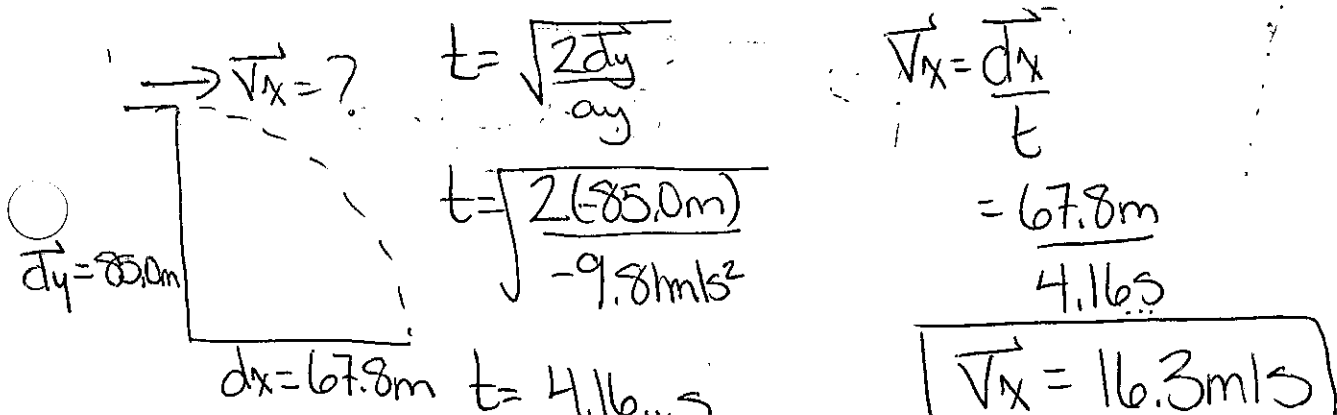 → V⃗x = ?
d⃗y = 85.0m
dx = 67.8m
t = √(2d⃗y / ay)
t = √(2(-85.0m) / -9.81m/s²)
t = 4.16...s
V⃗x = d⃗x / t
= 67.8m / 4.16...s
V⃗x = 16.3m/s